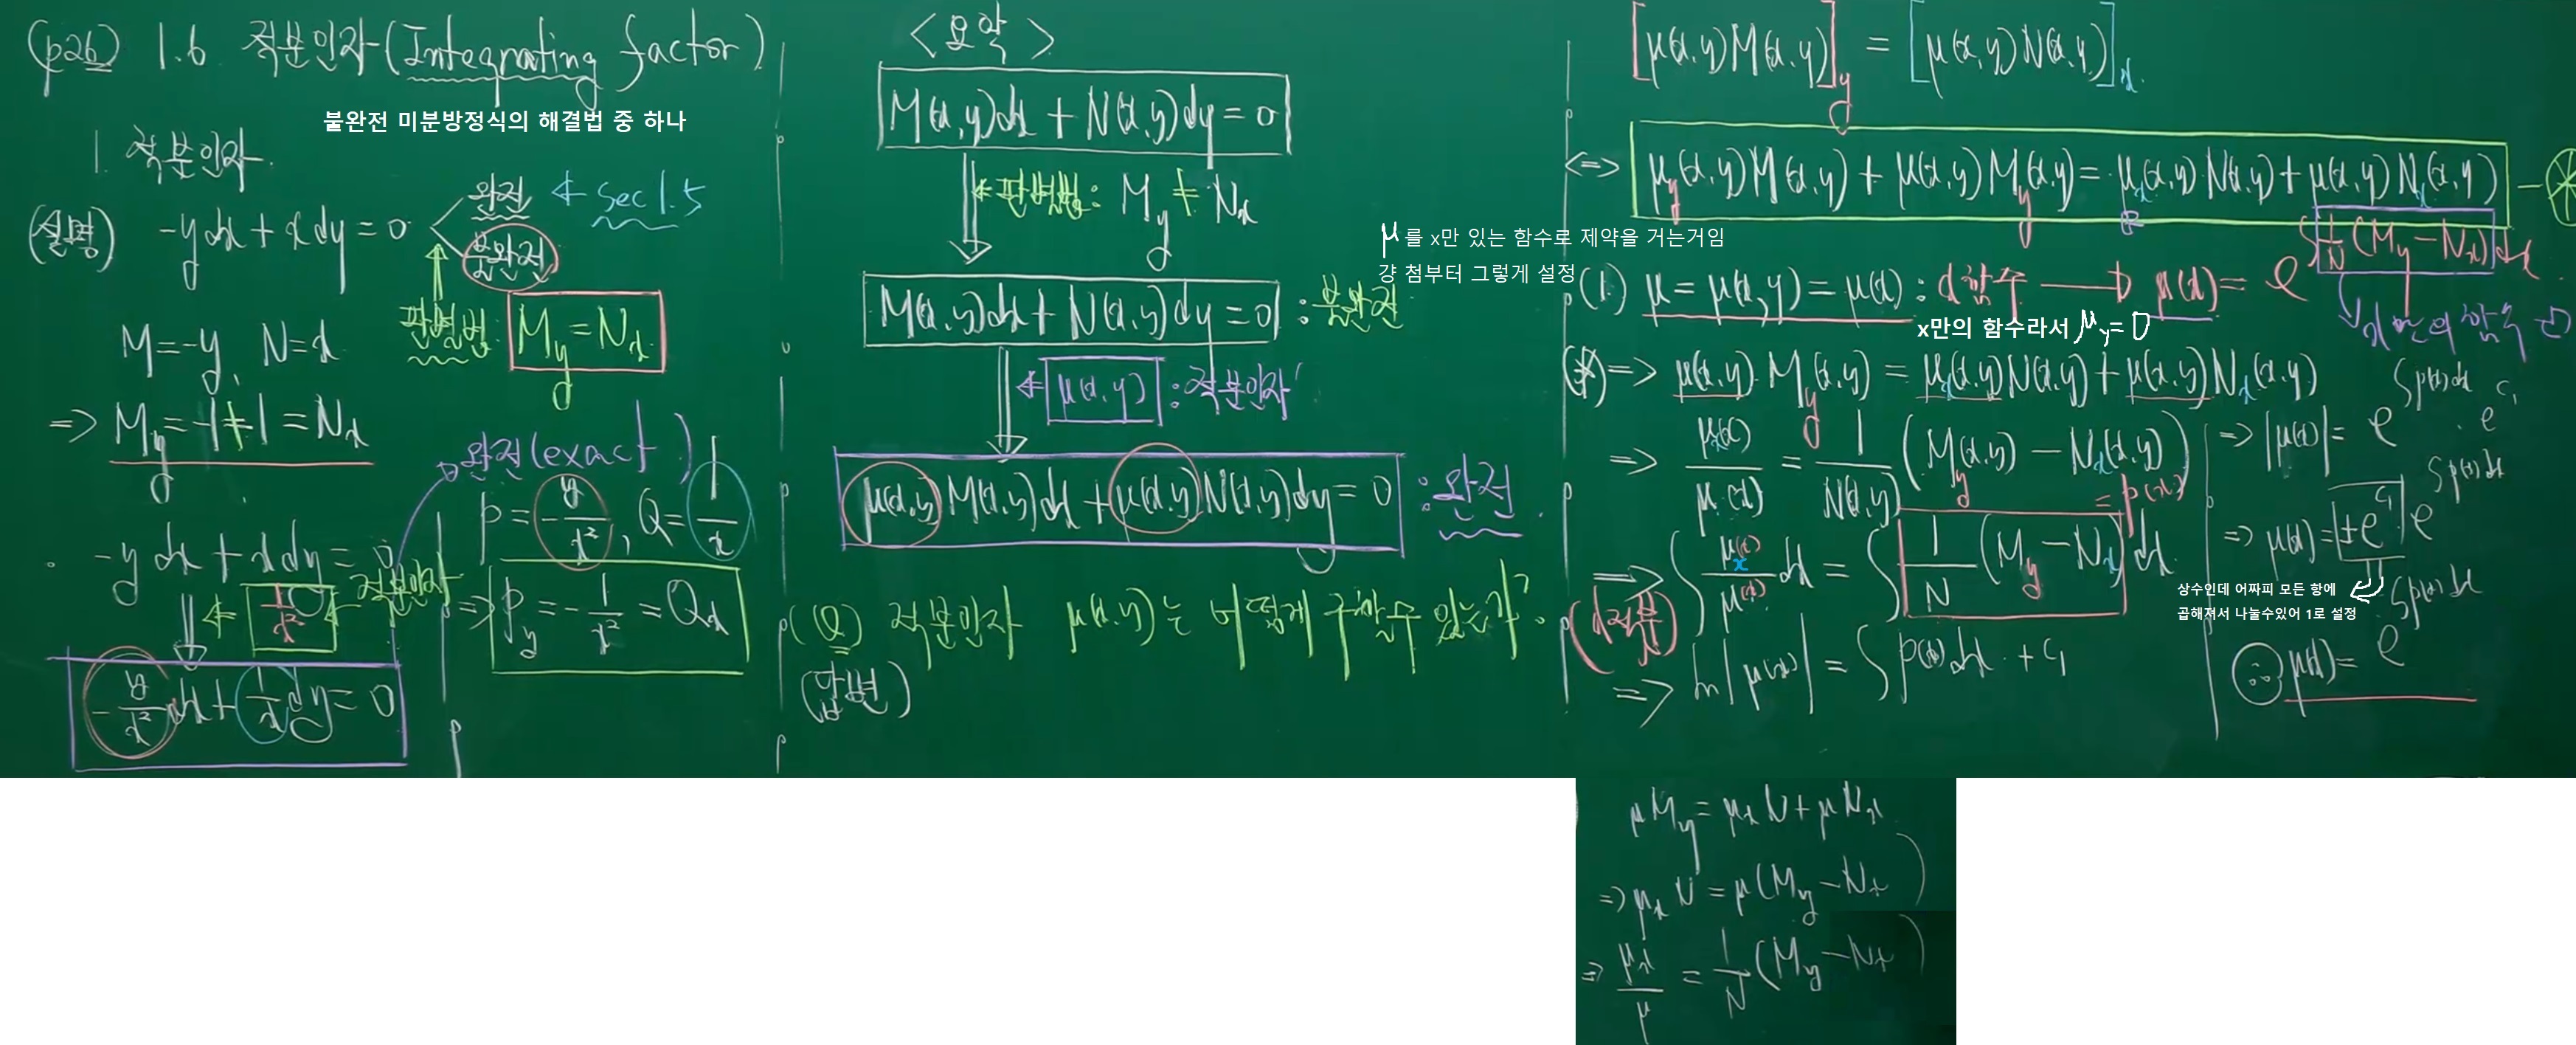 (p26) 1.6 적분인자 (Integrating factor)
불완전 미분방정식의 해결법 중 하나
1. 적분인자.
(설명) -ydx + xdy = 0
완전 ← Sec 1.5
불완전
판별법: M_y = N_x
M = -y, N = x
⇒ M_y = -1 ≠ 1 = N_x
-ydx + xdy = 0
⇓ ← 1/x² ← 적분인자
-y/x² dx + 1/x dy = 0
완전 (exact)
P = -y/x², Q = 1/x
⇒ P_y = -1/x² = Q_x
<요약>
M(x,y)dx + N(x,y)dy = 0
⇓ ← 판별법: M_y ≠ N_x
M(x,y)dx + N(x,y)dy = 0 : 불완전
⇓ ← μ(x,y) : 적분인자
μ(x,y)M(x,y)dx + μ(x,y)N(x,y)dy = 0 : 완전
(Q) 적분인자 μ(x,y)는 어떻게 구할수 있는가?
(답변)
[μ(x,y)M(x,y)]_y = [μ(x,y)N(x,y)]_x
<=> μ_y(x,y)M(x,y) + μ(x,y)M_y(x,y) = μ_x(x,y)N(x,y) + μ(x,y)N_x(x,y) - ⊛
μ를 x만 있는 함수로 제약을 거는거임
걍 첨부터 그렇게 설정
(1) μ = μ(x,y) = μ(x) : x함수 → μ(x) = e^{∫ 1/N (M_y - N_x)dx}
x만의 함수
x만의 함수라서 μ_y = 0
(*) => μ(x,y) M_y(x,y) = μ_x(x,y)N(x,y) + μ(x,y)N_x(x,y)
=> μ_x(x)/μ(x) = 1/N(x,y) (M_y(x,y) - N_x(x,y))
= p(x)
=> ∫ μ_x(x)/μ(x) dx = ∫ 1/N (M_y - N_x) dx
(x적분)
=> ln|μ(x)| = ∫p(x)dx + c₁
=> |μ(x)| = e^{∫p(x)dx} · e^{c₁}
=> μ(x) = ±e^{c₁} e^{∫p(x)dx}
상수인데 어짜피 모든 항에
곱해져서 나눌수있어 1로 설정
∴ μ(x) = e^{∫p(x)dx}
μM_y = μ_x N + μN_x
=> μ_x N = μ(M_y - N_x)
=> μ_x/μ = 1/N (M_y - N_x)